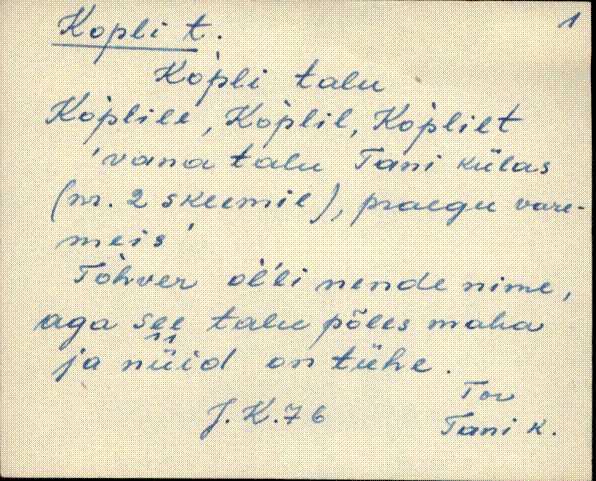 Kopli t. 1
Kòpli talu
Kòplile, Kòplil, Kòplilt
'vana talu Tani külas
(nr. 2 skeemil), praegu vare-
meis'
Tòhver òl̀li nende nime,
aga see talu põles maha
ja nüid on tühe.
J. K. 76 Tor
Tani k.